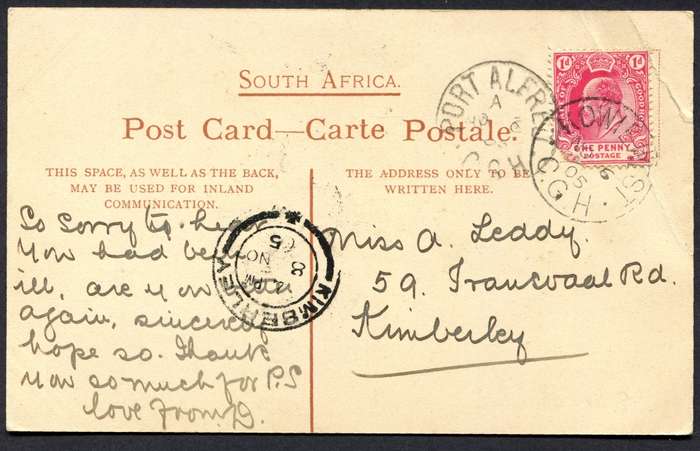 SOUTH AFRICA.
Post Card—Carte Postale.
THIS SPACE, AS WELL AS THE BACK,
MAY BE USED FOR INLAND
COMMUNICATION.
THE ADDRESS ONLY TO BE
WRITTEN HERE.
So sorry to hear
you had been
ill, are you
again, sincerely
hope so. Thank
you so much for P.S
love from D.
Miss A. Leddy.
59. Transvaal Rd.
Kimberley
PORT ALFRED
A
CGH
1d 1d
GOOD
ONE PENNY
POSTAGE
WEST
NO 6
05
CGH
KIMBERLEY
5
8
2 PM
NO
05